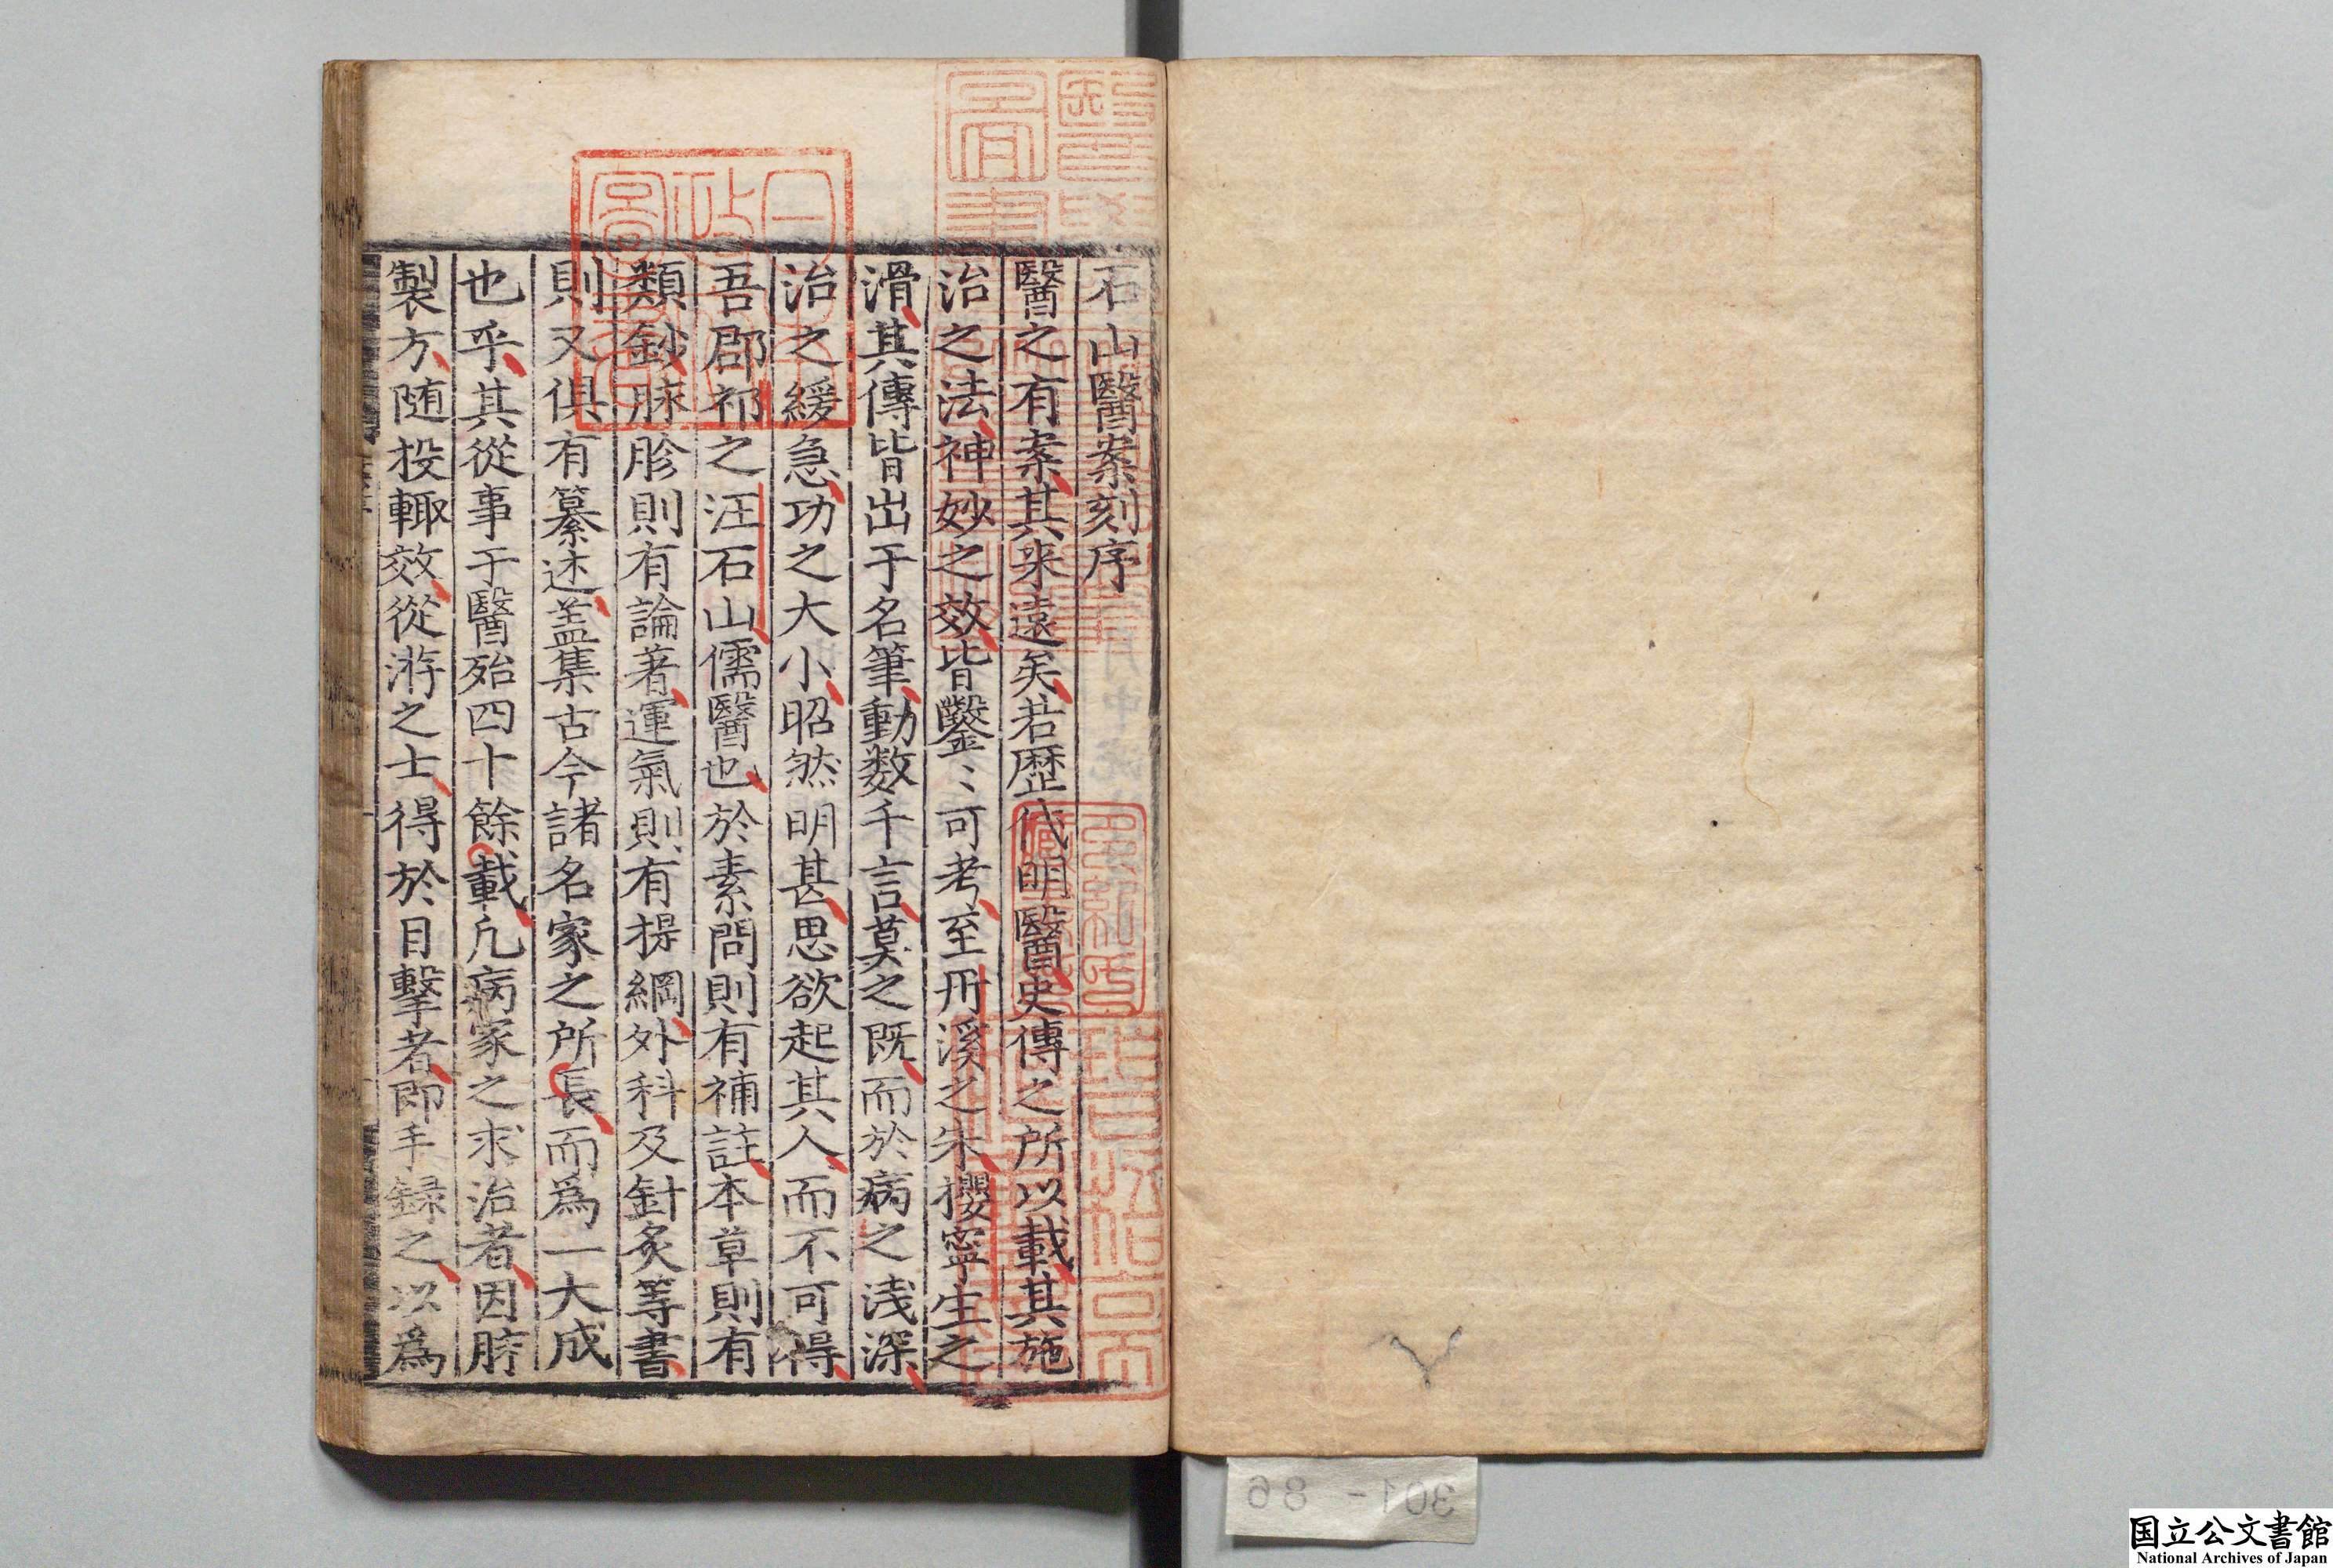 石山醫案刻序
醫之有案其來遠矣若歷代明醫史傳之所以載其施
治之法神妙之效皆鑿〻可考至丹溪之朱攖寧生之
滑其傳皆出于名筆動数千言莫之既而於病之浅深
治之緩急功之大小昭然明甚思欲起其人而不可得
吾郡祁之汪石山儒醫也於素問則有補註本草則有
類鈔脉胗則有論著運氣則有提綱外科及針炙等書
則又俱有纂述盖集古今諸名家之所長而爲一大成
也乎其從事于醫殆四十餘載凡病家之求治者因脐
製方随投輙效從游之士得於目擊者即手録之以爲
301-86
国立公文書館
National Archives of Japan